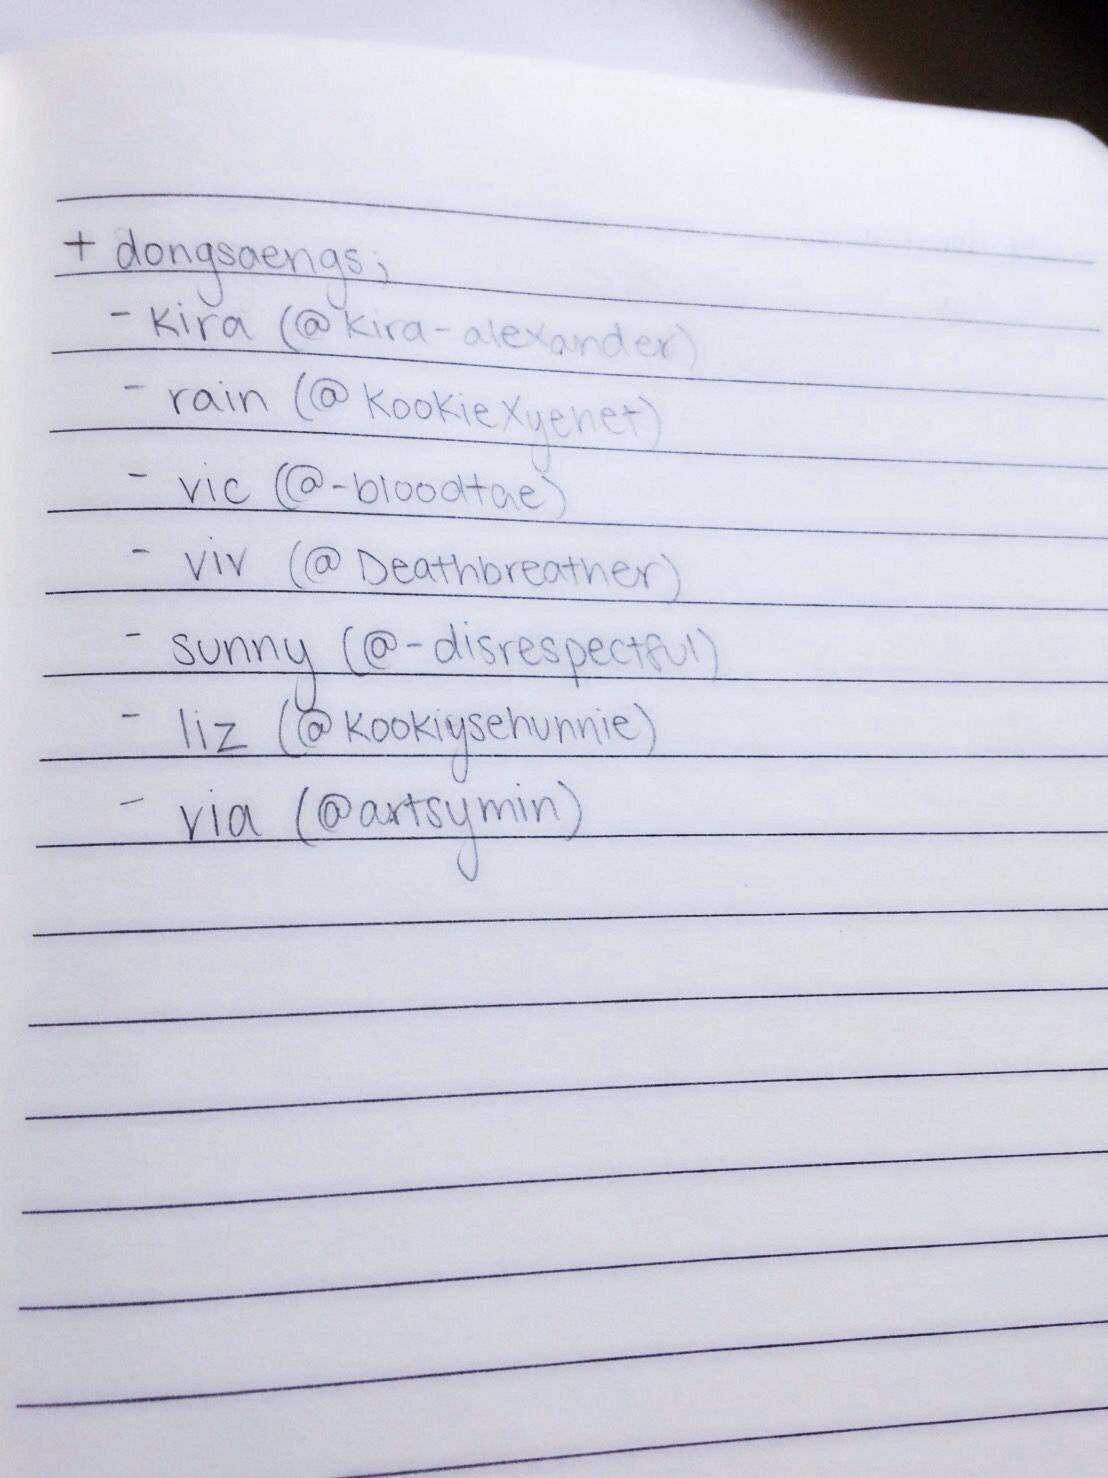 + dongsaengs;
- kira (@kira-alexander)
- rain (@KookieXyehet)
- vic (@-bloodtae)
- viv (@Deathbreather)
- sunny (@-disrespectful)
- liz (@kookiysehunnie)
- via (@artsymin)